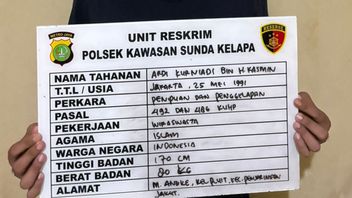 UNIT RESKRIM
POLSEK KAWASAN SUNDA KELAPA
NAMA TAHANAN : ARDI KURNIADI BIN H KASMIN
T.T.L / USIA : JAKARTA, 25 MEI 1991
PERKARA : PENIPUAN DAN PENGGELAPAN
PASAL : 492 DAN 486 KUHP
PEKERJAAN : WIRASWASTA
AGAMA : ISLAM
WARGA NEGARA : INDONESIA
TINGGI BADAN : 170 CM
BERAT BADAN : 80 KG
ALAMAT : M. ANGKE, KEL. PLUIT, KEC. PENJARINGAN
JAKUT.